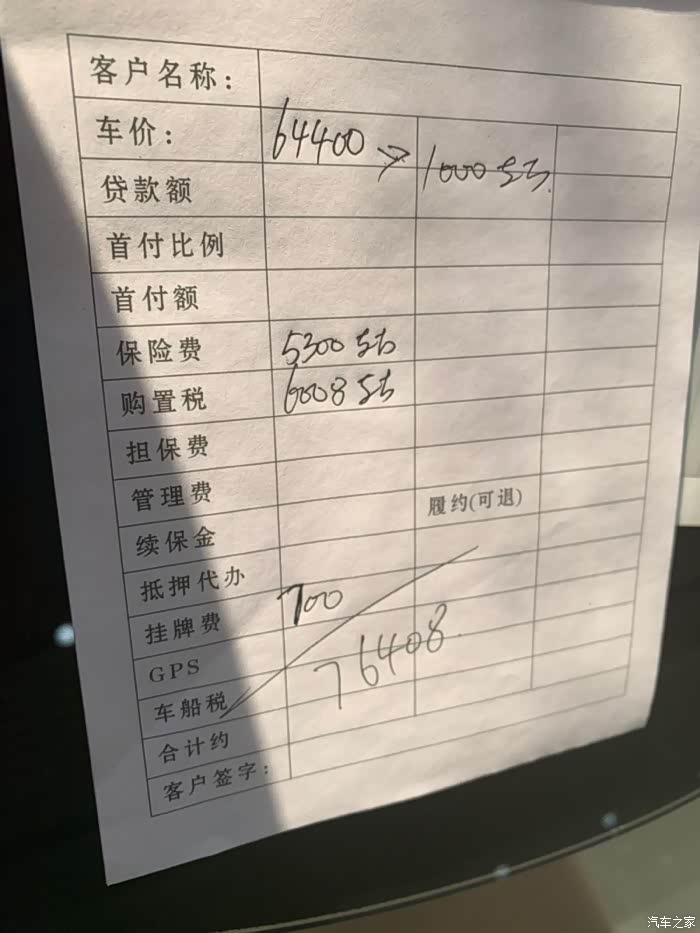 客户名称：
车价： 64400 → 1000
贷款额
首付比例
首付额
保险费 5300
购置税 6008
担保费
管理费 履约(可退)
续保金
抵押代办
挂牌费 700
GPS
车船税 76408
合计约
客户签字：
汽车之家